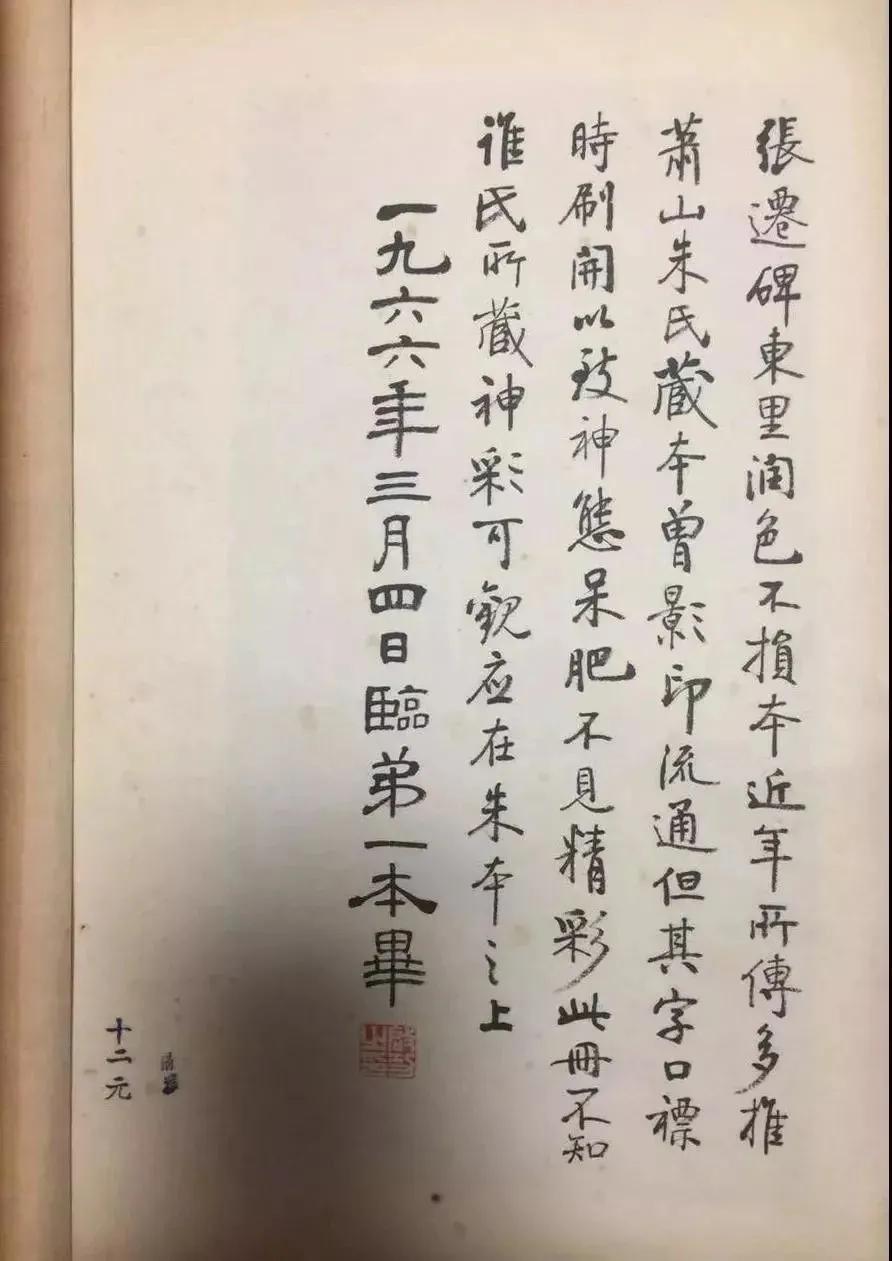 張遷碑東里潤色不損本近年所傳多推
蕭山朱氏藏本曾影印流通但其字口裱
時刷開以致神態呆肥不見精彩此冊不知
誰氏所藏神彩可觀应在朱本之上
一九六六年三月四日臨弟一本畢
十二元